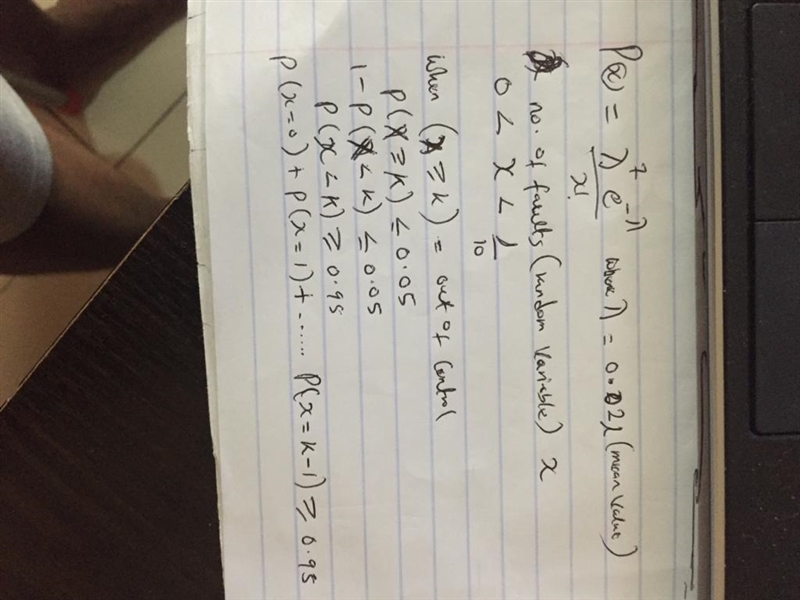 P(x) = λ^x e^-λ / x! where λ = (mean value)
no. of faults (random variable) x
0 < x < 1/10
when (X ≥ k) = out of control
P(X ≥ k) ≤ 0.05
1 - P(X < k) ≤ 0.05
P(x < k) ≥ 0.95
P(x=0) + P(x=1) + ...... P(x=k-1) ≥ 0.95